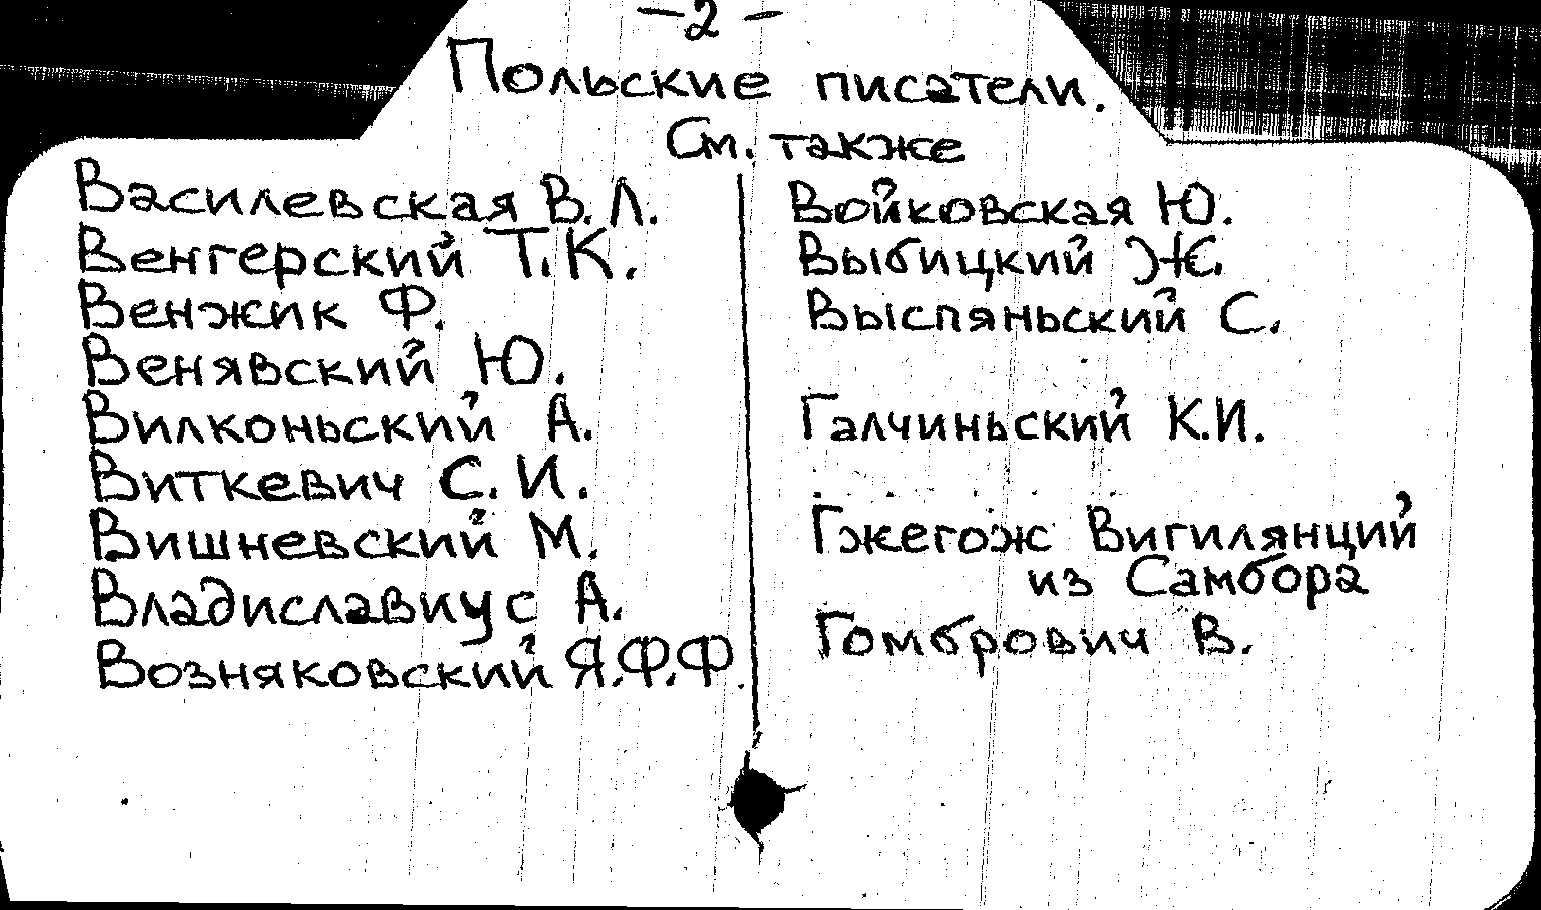 — 2 —
Польские писатели.
См. также
Василевская В. Л.
Венгерский Т. К.
Венжик Ф.
Венявский Ю.
Вилконьский А.
Виткевич С. И.
Вишневский М.
Владиславиус А.
Возняковский Я.Ф.Ф.
Войковская Ю.
Выбицкий Ж.
Выспяньский С.
Галчиньский К.И.
Гжегож Вигилянций
из Самбора
Гомбрович В.